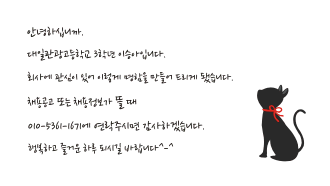 안녕하십니까.
대일관광고등학교 3학년 이승아입니다.
회사에 관심이 있어 이렇게 명함을 만들어 드리게 됐습니다.
채용공고 또는 채용정보가 뜰 때
010-5361-1671에 연락주시면 감사하겠습니다.
행복하고 즐거운 하루 되시길 바랍니다^-^